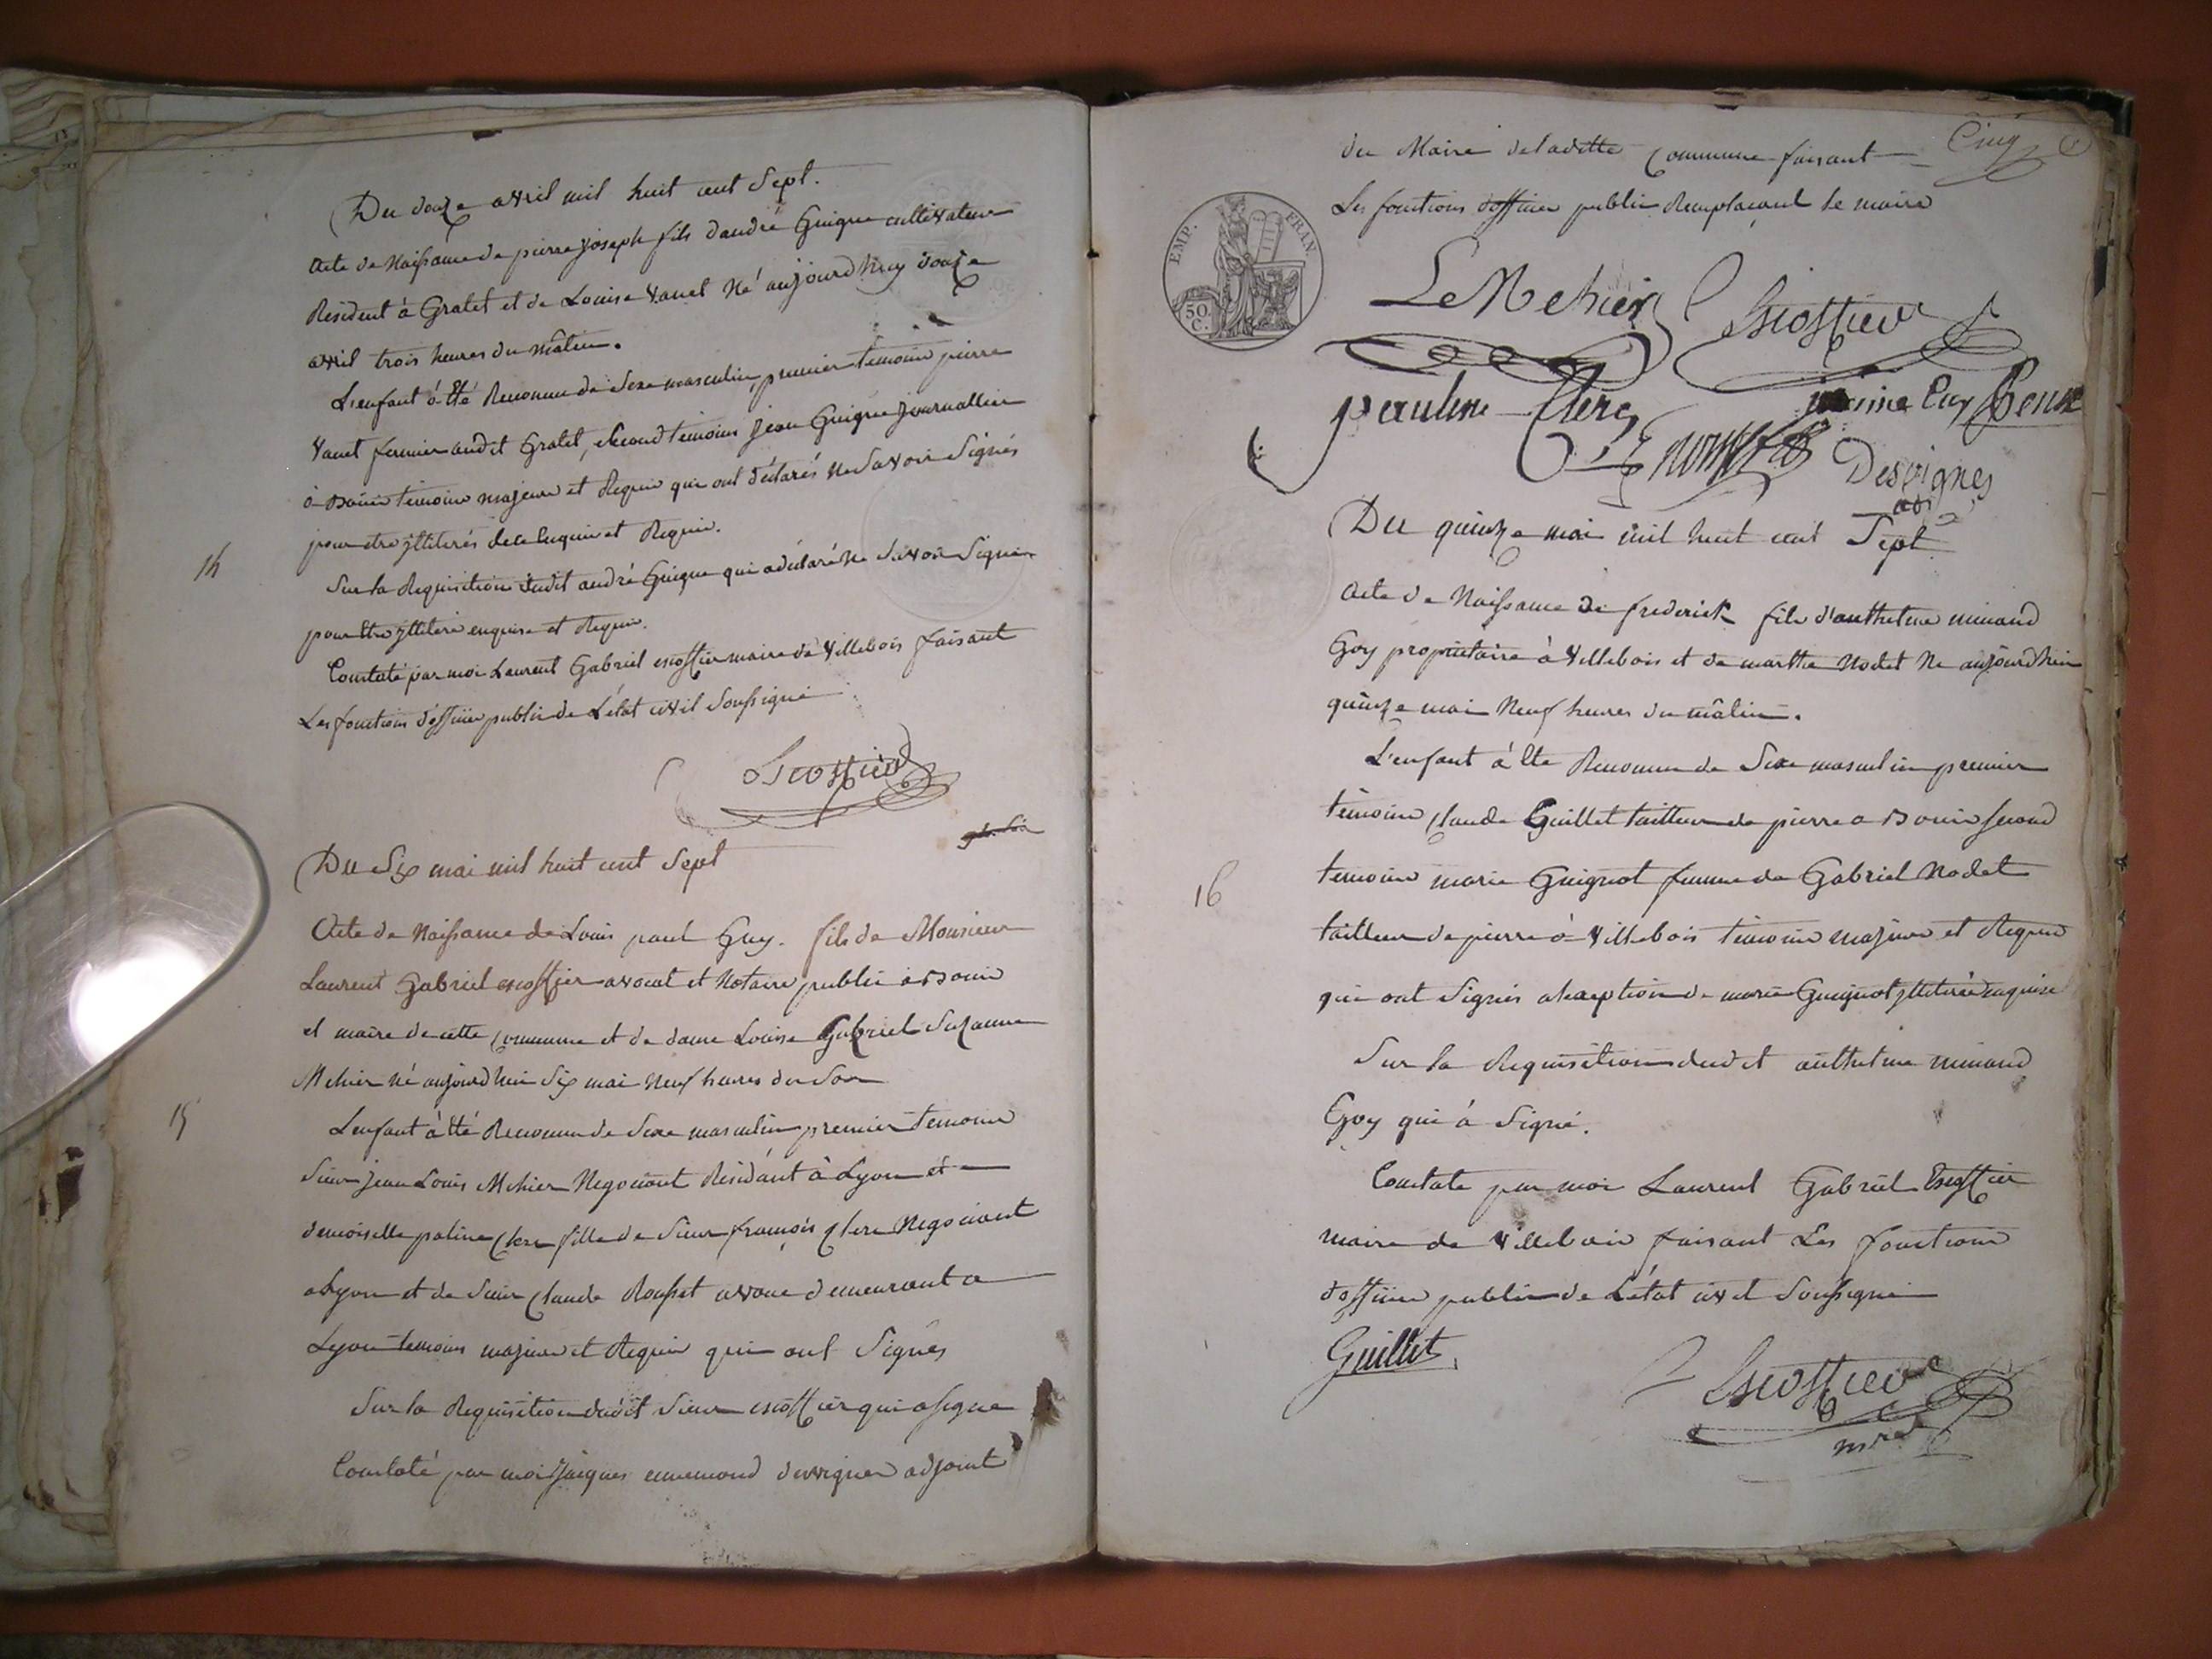 Du douze avril mil huit cent Sept.
Acte de Naissance de pierre joseph fils d'andré Guigue cultivateur
Résident à Gratet et de Louise Vanel Né aujourd'huy douze
avril trois heures du mâtin.
L'enfant à été Reconnu de Sexe masculin, premier temoin pierre
Vanel fermier audit Gratet, Second temoins jean Guigue journallier
à Bouis temoins majeurs et Requis qui ont déclarés ne Savoir Signés
pour etre jlliterés de ce enquis et Requis.
14
Sur la Requisition dudit andré Guigue qui a déclaré ne Savoir Signer
pour être jlliteré enquis et Requis.
Constaté par moi Laurent Gabriel escoffier maire de Villebois faisant
Les fonctions d'officier public de L'état civil Soussigné
Escoffier
Du Six mai mil huit cent Sept
Acte de Naissance de Louis paul Guy. fils de Monsieur
Laurent Gabriel escoffier avocat et Notaire public à Bouis
et maire de cette Commune et de dame Louise Gabriel Suzanne
Mehier né aujourd'hui Six mai Neuf heures du Soir
15
L'enfant à été Reconnu de Sexe masculin premier temoin
Sieur jean Louis Mehier Negociant Résidant à Lyon et
demoiselle poline Clerc fille de Sieur françois Clerc Negociant
a Lyon et de Sieur Claude Rousset avoue demeurant a
Lyon temoins majeurs et Requis qui ont Signés
Sur la Requisition dudit Sieur escoffier qui a signe
Constaté par moi Jacques ennemond desvignes adjoint
Cinq
du Maire de ladite Commune faisant
Les fonctions d'officier public Remplacant le maire
EMP. FRAN.
50 C.
Le Mehier Escoffier
pauline Clerc
Desvignes
adj
Du quinze mai mil huit cent Sept
Acte de Naissance de frederick fils d'anthelme minand
Goy propriétaire à Villebois et de marthe Nodet Ne aujourd'hui
quinze mai Neuf heures du mâtin.
L'enfant à Ete Reconnu de Sexe masculin premier
temoins Claude Guillet tailleur de pierre a Bouis second
16
temoins marie Guignot femme de Gabriel Nodet
tailleur de pierre à Villebois temoins majeurs et Requis
qui ont Signés a lexeption de marie Guignot jlliterée enquise
Sur la Requisition dudit anthelme minand
Goy qui à Signé.
Constate par moi Laurent Gabriel Escoffier
maire de Villebois faisant Les fonctions
d'officier public de L'état civil Soussigné
Guillet
Escoffier
mre